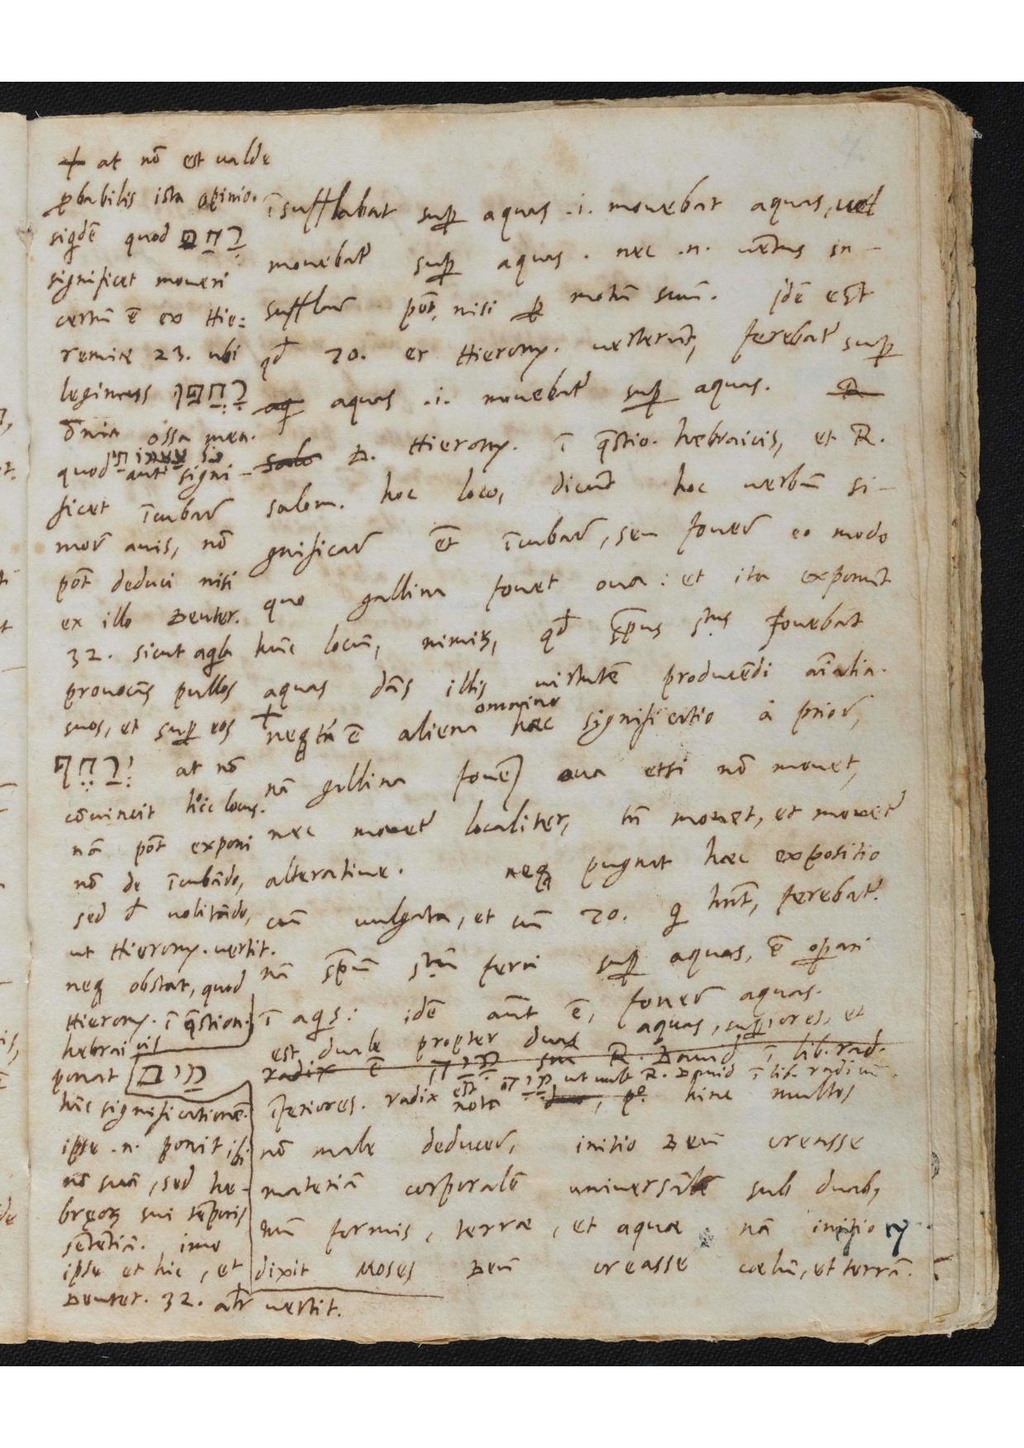 + at nō est ualde
ꝓbabilis ista opinio.
siqdē quod רחפ
significet moueri
certū ē ex Hie:
remiæ 23. ubi
legimus רחפו
ōnia ossa mea.
quod aūt signi-
ficet īcubar̄
mor̄ auis, nō
pōt deduci nisi
ex illo Deuter.
32. sicut aqla
prouocās pullos
suos, et suꝑ eos
ירחף at nō
cōuincit hic locus.
nā pōt exponi
nō de īcubādo,
sed d̄ uolitādo,
ut Hierony. uertit.
neq obstat, quod
Hierony. ī qstion.
hebraicis
ponat
hāc significationē.
ipse .n. ponit ibi
nō suā, sed he-
bręoꝝ sui tēporis
sētētiā. imo
ipse et hic, et
Deuter. 32. alr̄ uertit.
īsufflabat suꝑ aquas .i. mouebat aquas, uel
mouebat suꝑ aquas. nec .n. uētus in-
sufflar̄ pōt, nisi ꝑ motū suū. Idē est
qd̄ 70. et Hierony. uerterūt, ferebat suꝑ
aq aquas .i. mouebat suꝑ aquas. R
salo D. Hierony. ī qstio. hebraicis, et R.
salom. hoc loco, dicūt hoc uerbū si-
gnificar̄ et īcubar̄, seu fouer̄ eo modo
quo gallina fouet oua: et ita exponūt
hūc locū, nimiꝝ, qd̄ spūs stus fouebat
aquas dās illis uirtutē producēdi aīalia.
+ neq tn̄ ē aliena omnino hæc significatio à prior̄,
nā gallina fouēs oua etsi nō mouet,
nec mouet localiter, tn̄ mouet, et mouet
alteratiue. neq pugnat hæc expositio
cū uulgata, et cū 70. q hnt, ferebat.
nā spūm stūm ferri suꝑ aquas, ē operari
ī aqs: idē aūt ē, fouer̄ aquas.
est duale propter duas aquas, suꝑiores, et
radix ē R. Dauid ī lib. rad.
īferiores. radix est ut uult R. Dauid ī lib. radicū.
nota, pº. hinc multos
nō male deducer̄, initio Deū creasse
materiā corporalē uniuersālē sub duab,
tm̄ formis, terræ, et aquæ. nā initio
dixit Moses Deū creasse cœlū, et terrā.